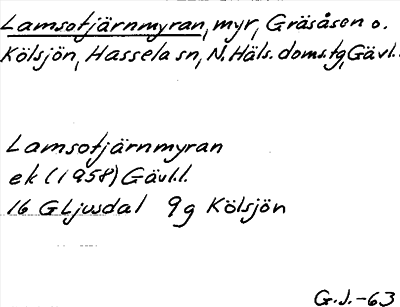 Lamsotjärnmyran, myr, Gräsåsen o.
Kölsjön, Hassela sn, N. Häls. doms.tg, Gävl.l.
Lamsotjärnmyran
ek (1958) Gävl.l.
16 G Ljusdal 9g Kölsjön
G.J.-63